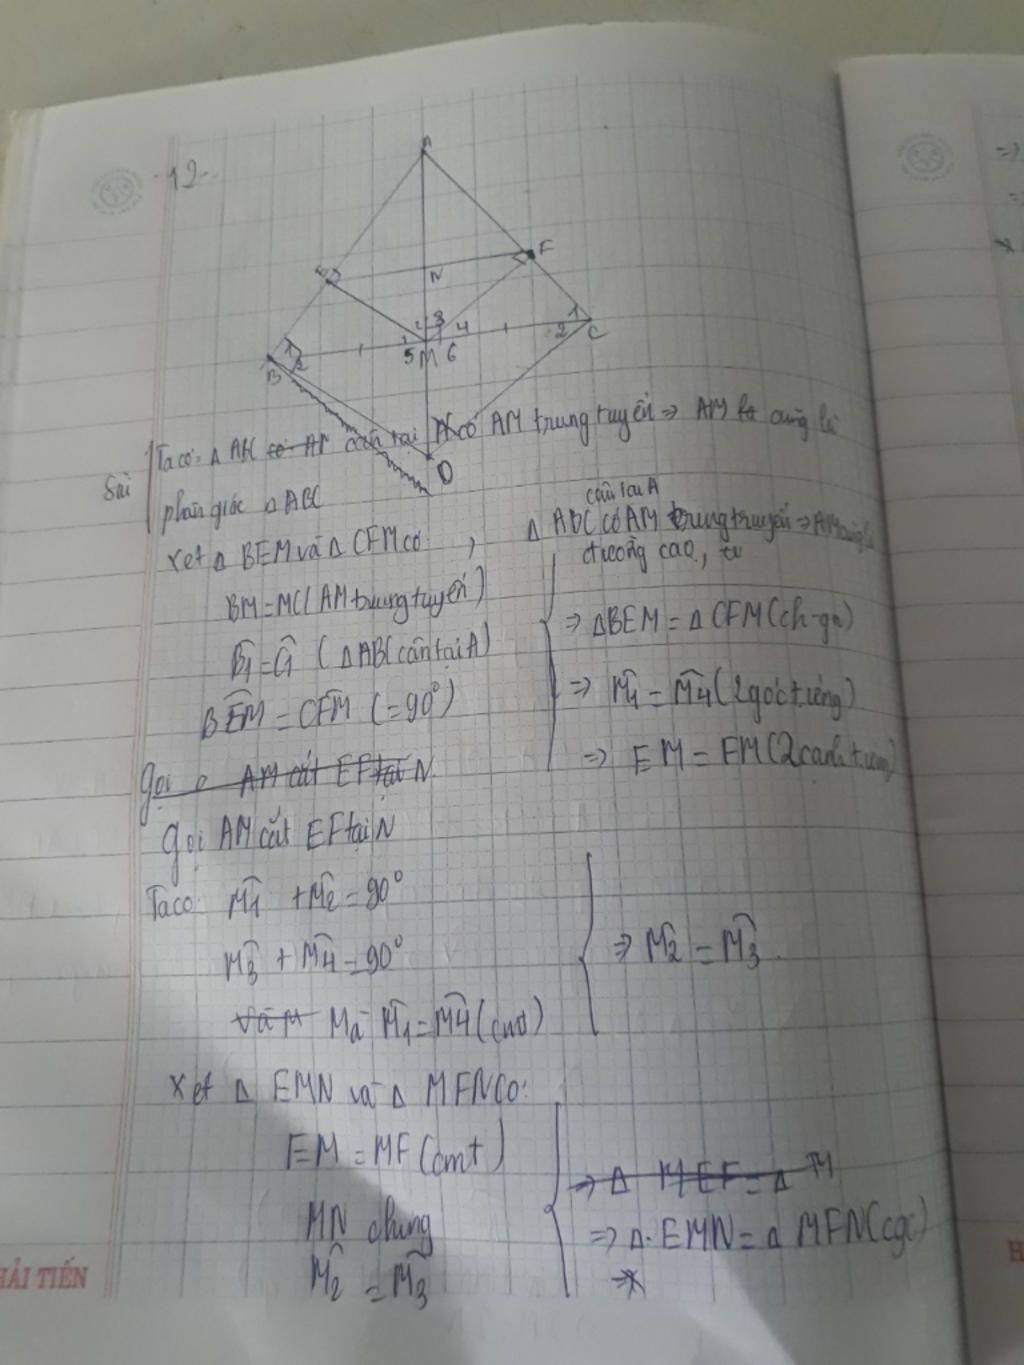 12
A
E
F
N
2 3
1 4
1
2
C
1
2
B
5 M 6
D
Sai
Ta có: Δ ABC cân tại A có AM trung tuyến => AM cũng là
phân giác Δ ABC
cân tại A
Δ ABC có AM trung truyến => AM cũng là
đường cao,
xét Δ BEM và Δ CFM có
BM = MC (AM trung tuyến)
B̂1 = Ĉ1 (Δ ABC cân tại A)
BÊM = CF̂M (= 90°)
=> ΔBEM = Δ CFM (ch-gn)
=> M̂1 = M̂4 (2 góc t.ứng)
=> EM = FM (2 cạnh t.ứng)
Gọi AM cắt EF tại N
Gọi AM cắt EF tại N
Ta có: M̂1 + M̂2 = 90°
M̂3 + M̂4 = 90°
Mà M̂1 = M̂4 (cmt)
=> M̂2 = M̂3
Xét Δ EMN và Δ MFN có:
EM = MF (cmt)
MN chung
M̂2 = M̂3
=> Δ MEF = Δ M
=> Δ EMN = Δ MFN (cgc)
=>
HẢI TIẾN
H
=>
=